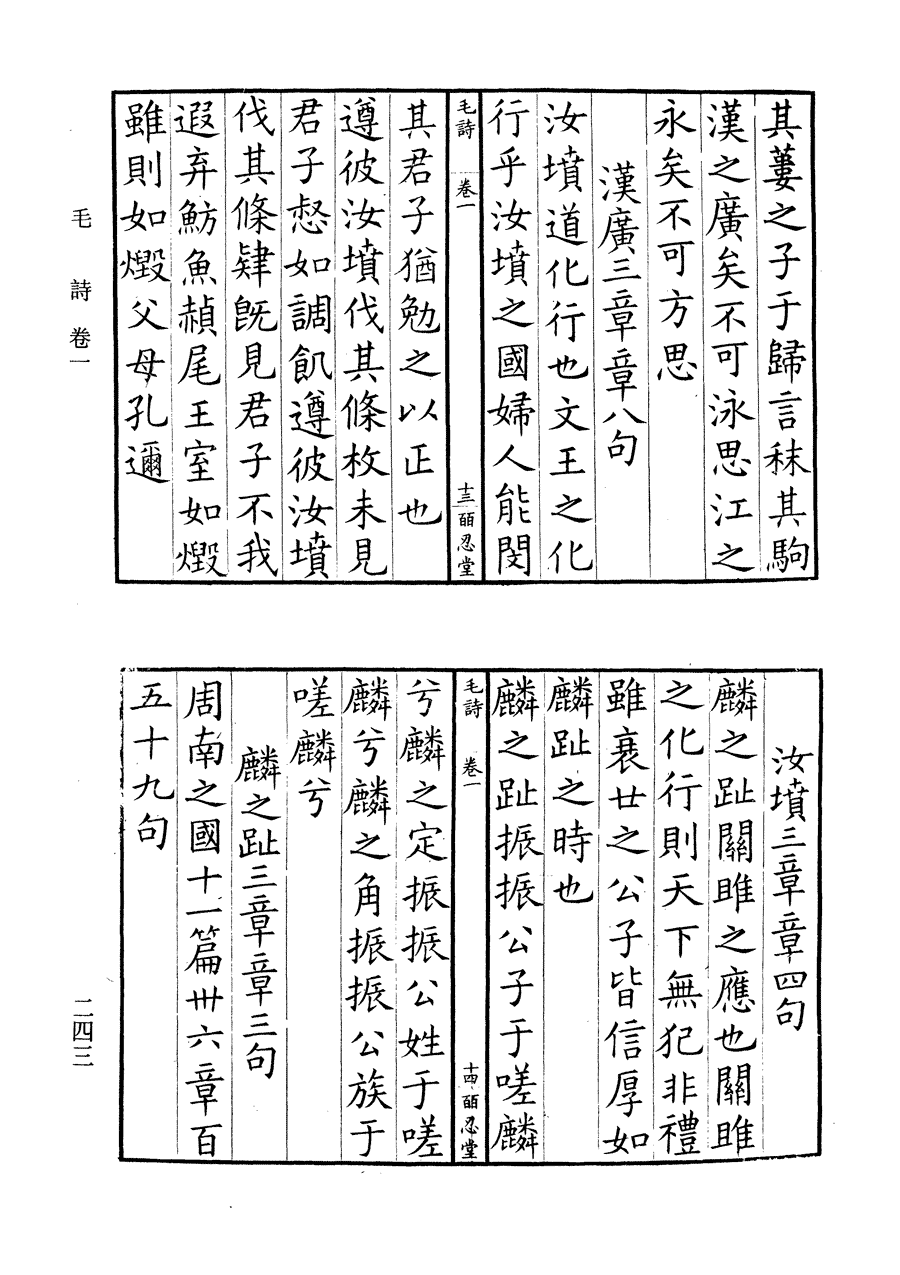 其蔞之子于歸言秣其駒
漢之廣矣不可泳思江之
永矣不可方思
漢廣三章章八句
汝墳道化行也文王之化
行乎汝墳之國婦人能閔
毛詩 卷一 十三 皕忍堂
其君子猶勉之以正也
遵彼汝墳伐其條枚未見
君子惄如調飢遵彼汝墳
伐其條肄旣見君子不我
遐弃魴魚赬尾王室如燬
雖則如燬父母孔邇
毛詩卷一
汝墳三章章四句
麟之趾關雎之應也關雎
之化行則天下無犯非禮
雖衰廿之公子皆信厚如
麟趾之時也
麟之趾振振公子于嗟麟
毛詩 卷一 十四 皕忍堂
兮麟之定振振公姓于嗟
麟兮麟之角振振公族于
嗟麟兮
麟之趾三章章三句
周南之國十一篇卌六章百
五十九句
二四三